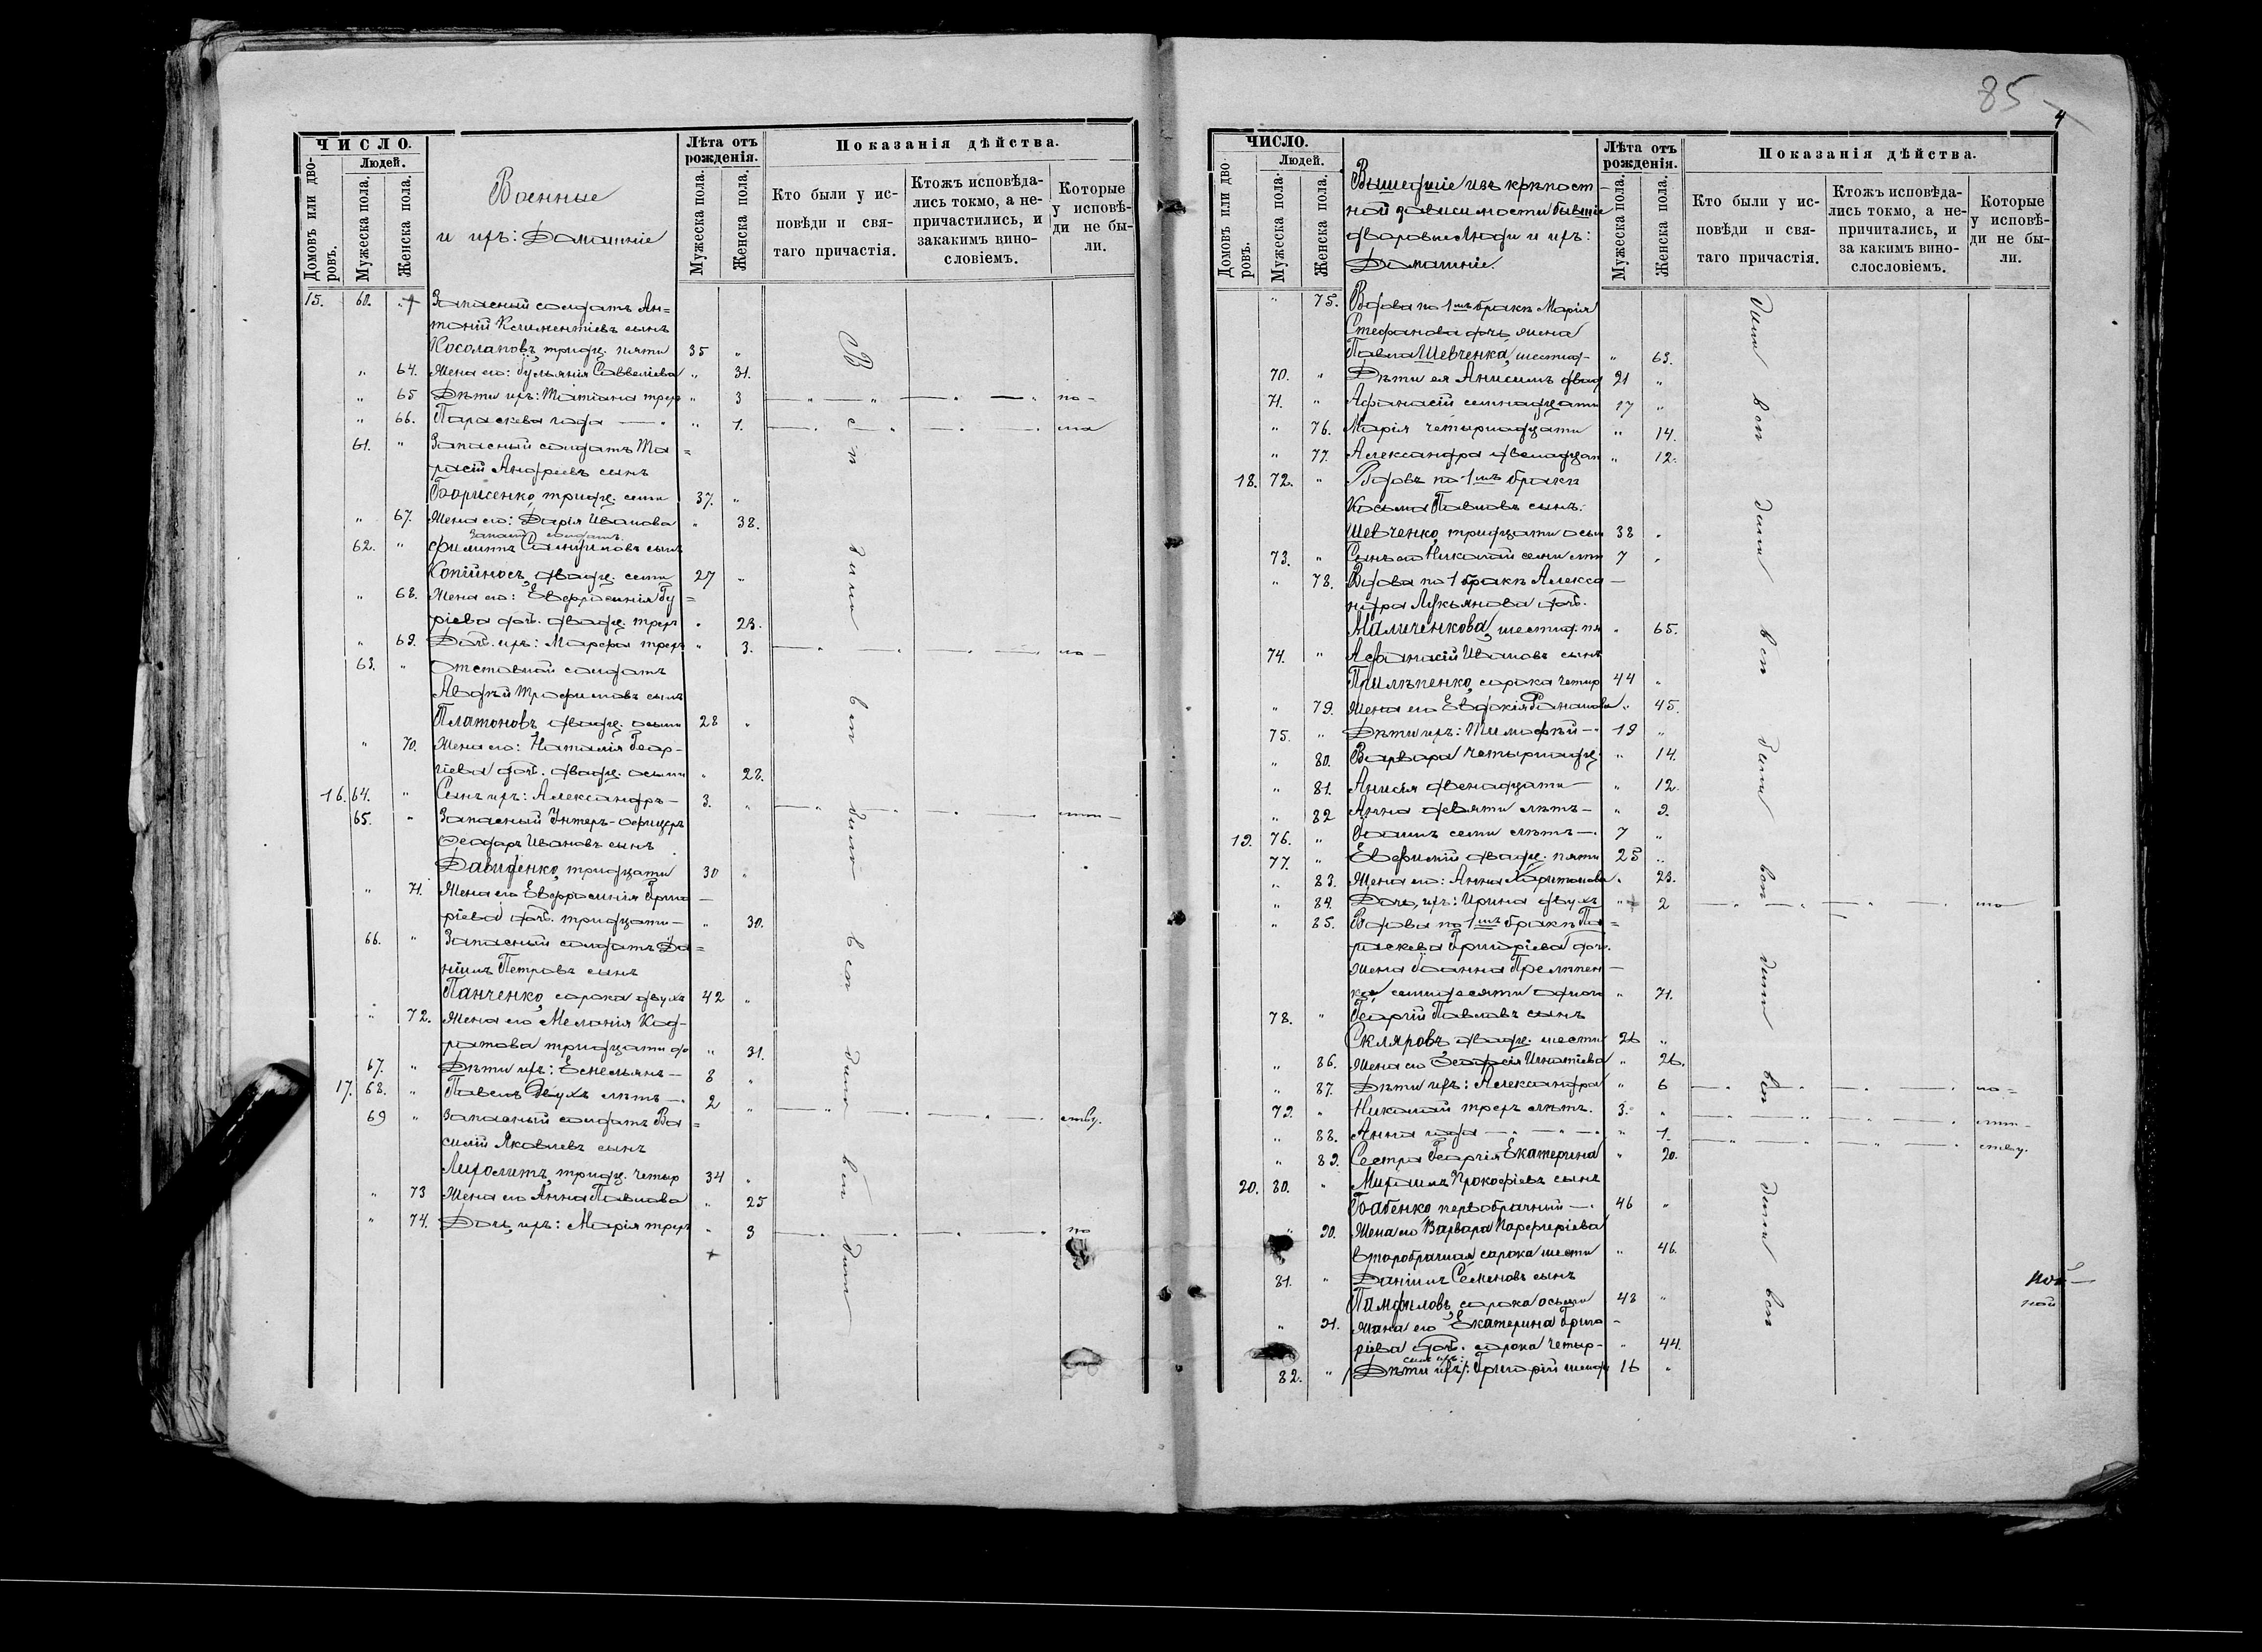 85
4
ЧИСЛО.
Людей.
Домовъ или дво-
ровъ.
Мужеска пола.
Женска пола.
Военные
и ихъ: Домашніе
Лѣта отъ
рожденія.
Мужеска пола.
Женска пола.
Показанія дѣйства.
Кто были у ис-
повѣди и свя-
таго причастія.
Ктожъ исповѣда-
лись токмо, а не-
причастились, и
закакимъ вино-
словіемъ.
Которые
у исповѣ-
ди не бы-
ли.
15. 60. " Запасный солдатъ Ан=
тоній Климентіевъ сынъ
Косолаповъ, тридц. пяти 35 "
" 64. Жена его: Іульянія Савелиева " 31.
" 65 Дѣти ихъ: Татіана трехъ " 3 по-
" 66. Параскева года " 1.
61. " Запасный солдатъ Та=
расій Андреевъ сынъ
Борисенко, тридц. семи 37. "
" 67. Жена его: Дарія Иванова " 38.
Запасн. солдатъ.
62. " Филиппъ Самуиловъ сынъ
Копійносъ, двадц. семи 27 "
" 68. Жена его: Евфросинія Гу=
ріева доч. двадц. трехъ " 23.
" 69. Дочь ихъ: Марфа трехъ " 3.
63. " Отставной солдатъ
Авдѣй Трофимовъ сынъ
Платоновъ, двадц. осьми 28 "
" 70. Жена его: Наталія Геор-
гіева доч. двадц. осьми " 28.
16. 64. " Сынъ ихъ: Александръ- 3. "
65. " Запасный Унтеръ-офицеръ
Ѳеодоръ Ивановъ сынъ
Давиденко, тридцати 30 "
" 71. Жена его Евфросинія Григо-
ріева доч. тридцати- " 30.
66. " Запасный солдатъ Да=
ніилъ Петровъ сынъ
Панченко, сорока двухъ 42 "
" 72. Жена его Меланія Код-
ратова тридцати од " 31.
67. " Дѣти ихъ: Емельянъ- 8 "
17. 68. " Павелъ двухъ лѣтъ-. 2 " ству.
69 " Запасный солдатъ Ва=
силій Яковлевъ сынъ
тридц. четыр 34 "
" 73 Жена его Анна Павлова " 25
" 74. Дочь ихъ: Марія трехъ " 3 по
ЧИСЛО.
Людей.
Домовъ или дво-
ровъ.
Мужеска пола.
Женска пола.
Вышедшіе изъ крѣпост-
ной зависимости бывшіе
дворовые люди и ихъ:
Домашніе.
Лѣта отъ
рожденія.
Мужеска пола.
Женска пола.
Показанія дѣйства.
Кто были у ис-
повѣди и свя-
таго причастія.
Ктожъ исповѣда-
лись токмо, а не-
причитались, и
за какимъ вино-
слословіемъ.
Которые
у исповѣ-
ди не бы-
ли.
" 75. Вдова по 1мъ бракѣ Марія
Стефанова дочь, жена
Павла Шевченка, шестид- " 63.
70. " Дѣти ея Анисимъ двад 21 "
71. " Афанасій семнадцати 17 "
" 76. Марія четырнадцати " 14.
" 77. Александра двенадцат " 12.
18. 72. " Вдовъ по 1мъ бракѣ
Косьма Павловъ сынъ.
Шевченко, тридцати осьм 38 "
73. " Сынъ его Николай семи лѣт 7 "
" 78. Вдова по 1 бракѣ Алекса-
ндра Лукьянова доч.
Маличенкова, шестид. пя " 65.
74. " Афанасій Ивановъ сынъ
Прилѣпенко, сорока четыр 44 "
" 79. Жена его Евдокія " 45.
75. " Дѣти ихъ: Тимофѣй-. 19 "
" 80. Варвара четырнадц. " 14.
" 81. Анисія двенадцати- " 12.
" 82 Анна девяти лѣтъ- " 9.
19. 76. " Іоаннъ семи лѣтъ-. 7 "
77. " Евфимій двадц. пяти 25 "
" 83. Жена его: Анна Харитонова " 23.
" 84. Дочь, ихъ: Ирина двухъ " 2
" 85. Вдова по 1мъ бракѣ Па=
раскева Григоріева доч.
жена Іоанна Прелѣпен-
ко семидесяти одного " 71.
78. " Георгій Павловъ сынъ
Скляровъ двадц. шести 26 "
" 86. Жена его Ѳеодосія Игнатіева " 26.
" 87. Дѣти ихъ: Александра " 6 по=
79. " Николай трехъ лѣтъ. 3. "
" 88. Анна года " 1. ству.
" 89. Сестра Георгія Екатерина " 20.
20. 80. " Миронъ Прокофіевъ сынъ
Бабенко первобрачный-. 46 "
" 90. Жена его Варвара Порфиріева
второбрачная сорока шести " 46.
81. " Даніилъ Семеновъ сынъ
Памфиловъ, сорока осьми 48 "
" 91. Жена его Екатерина Григо-
ріева доч. сорока четыр- " 44.
сынъ ихъ:
82. " Дѣти ихъ: Григорій шестн 16 "